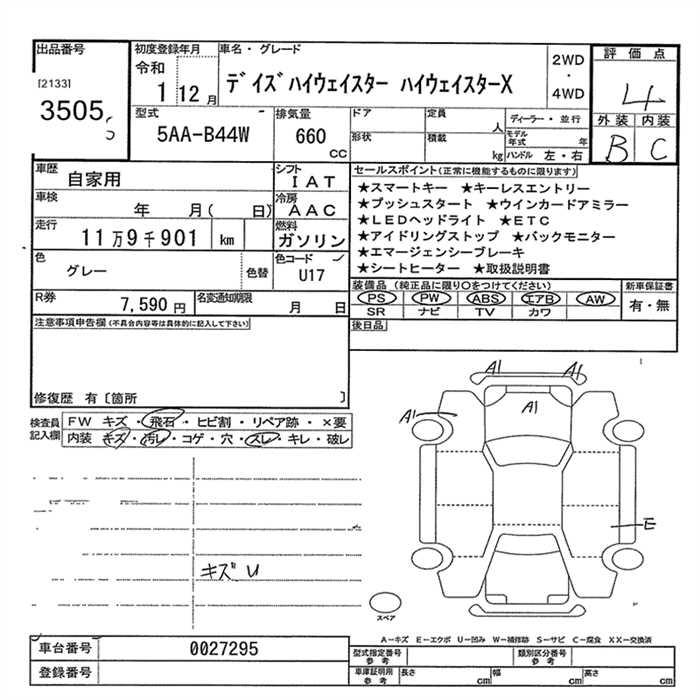 出品番号
[2133]
3505
初度登録年月
令和
1 12月
車名・グレード
デイズハイウェイスター ハイウェイスターX
2WD
・
4WD
評価点
4
外装 内装
B C
型式
5AA-B44W
排気量
660
CC
ドア
定員
人
形状
積載
kg
ディーラー・並行
モデル年式 年
ハンドル 左・右
車歴
自家用
シフト
IAT
車検
年 月( 日)
冷房
AAC
走行
11万9千901 km
燃料
ガソリン
色
グレー
色替
色コード
U17
R券
7,590円
名変通知期限
月 日
セールスポイント(正常に機能するものに限ります)
★スマートキー ★キーレスエントリー
★プッシュスタート ★ウインカードアミラー
★LEDヘッドライト ★ETC
★アイドリングストップ ★バックモニター
★エマージェンシーブレーキ
★シートヒーター ★取扱説明書
装備品(純正品に限り○をつけてください)
新車保証書
PS PW ABS エアB AW
SR ナビ TV カワ
有・無
後日品
注意事項申告欄(不具合内容等は具体的に記入して下さい)
修復歴 有〔箇所 〕
検査員記入欄
FW キズ・飛石・ヒビ割・リペア跡・×要
内装 キズ・汚レ・コゲ・穴・スレ・キレ・破レ
キズ U
A1 A1
A1
A1
E
スペア
A-キズ E-エクボ U-凹み W-補修跡 S-サビ C-腐食 XX-交換済
車台番号
0027295
登録番号
型式指定番号
参考
類別区分番号
参考
車庫証明用
参考
長さ cm 幅 cm 高さ cm